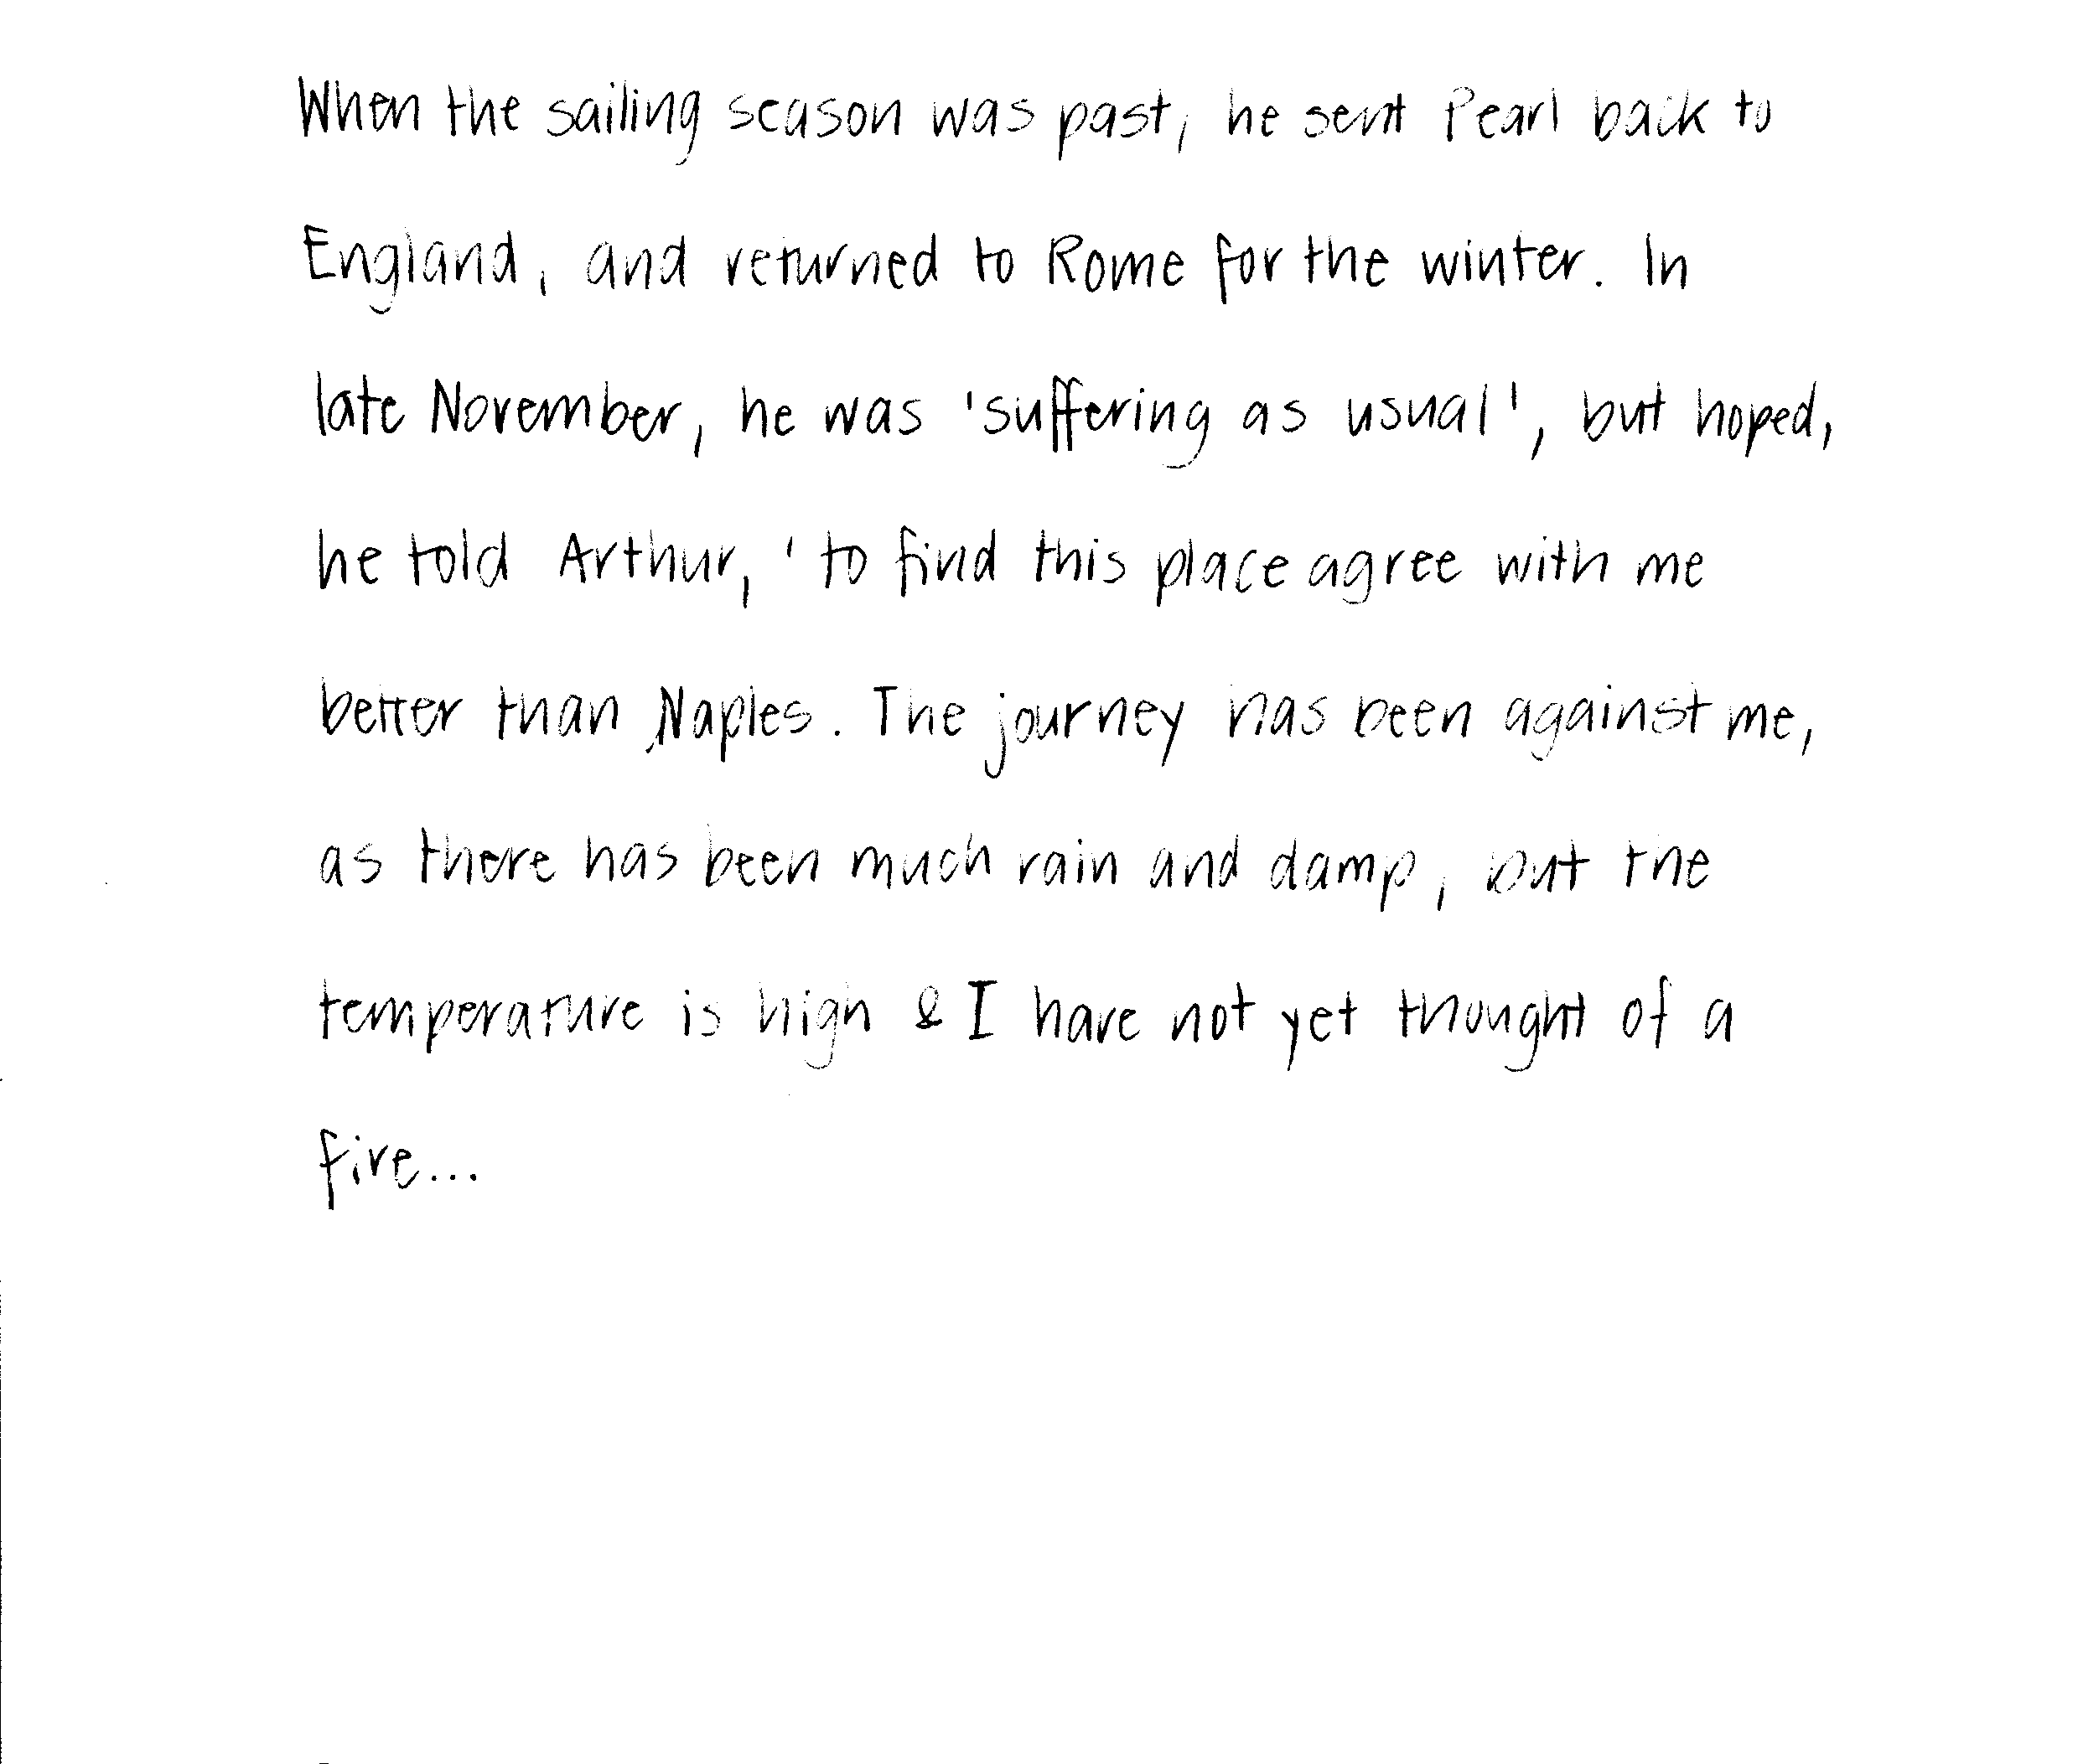 When the sailing season was past, he sent Pearl back to
England, and returned to Rome for the winter. In
late November, he was 'suffering as usual', but hoped,
he told Arthur, 'to find this place agree with me
better than Naples. The journey has been against me,
as there has been much rain and damp, but the
temperature is high & I have not yet thought of a
fire...